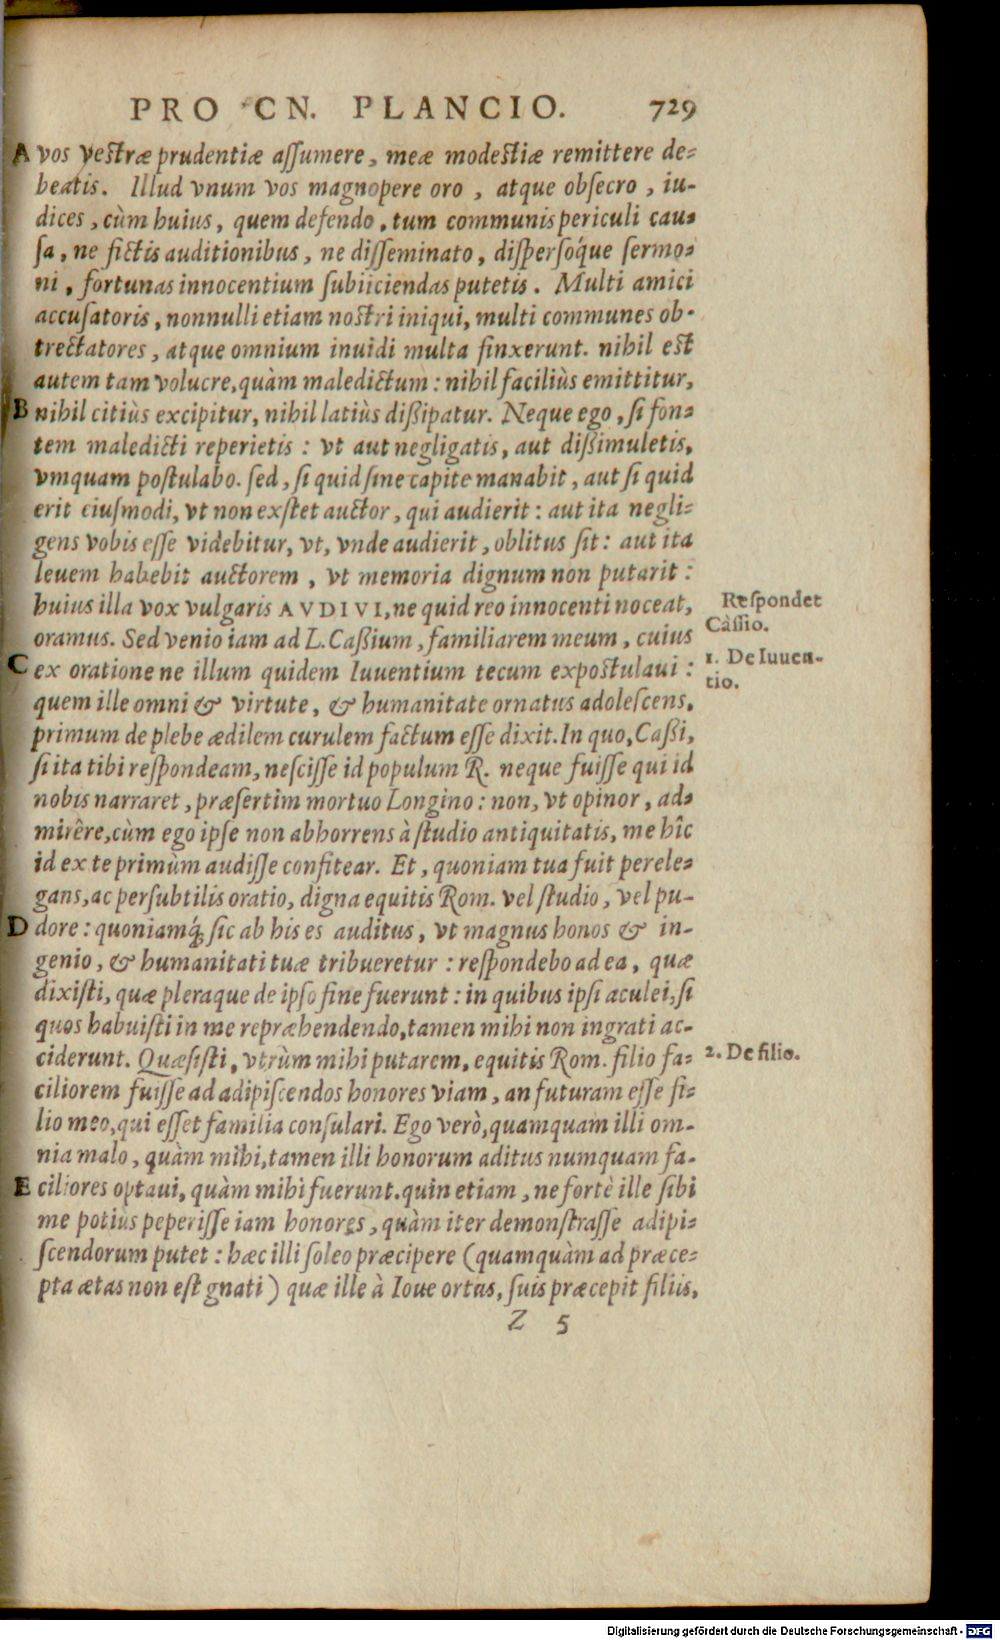 PRO CN. PLANCIO. 729
A vos vestræ prudentiæ assumere, meæ modestiæ remittere de-
beatis. Illud vnum vos magnopere oro, atque obsecro, iu-
dices, cùm huius, quem defendo, tum communis periculi cau-
sa, ne fictis auditionibus, ne disseminato, dispersóque sermo-
ni, fortunas innocentium subiiciendas putetis. Multi amici
accusatoris, nonnulli etiam nostri iniqui, multi communes ob-
trectatores, atque omnium inuidi multa finxerunt. nihil est
autem tam volucre, quàm maledictum: nihil faciliùs emittitur,
B nihil citiùs excipitur, nihil latiùs dißipatur. Neque ego, si fon-
tem maledicti reperietis: vt aut negligatis, aut dißimuletis,
vmquam postulabo. sed, si quid sine capite manabit, aut si quid
erit eiusmodi, vt non exstet auctor, qui audierit: aut ita negli-
gens vobis esse videbitur, vt, vnde audierit, oblitus sit: aut ita
leuem habebit auctorem, vt memoria dignum non putarit:
huius illa vox vulgaris AVDIVI, ne quid reo innocenti noceat,
Respondet
oramus. Sed venio iam ad L. Caßium, familiarem meum, cuius
Cassio.
C ex oratione ne illum quidem Iuuentium tecum expostulaui:
1. De Iuuen-
tio.
quem ille omni & virtute, & humanitate ornatus adolescens,
primum de plebe ædilem curulem factum esse dixit. In quo, Caßi,
si ita tibi respondeam, nescisse id populum R. neque fuisse qui id
nobis narraret, præsertim mortuo Longino: non, vt opinor, ad-
mirêre, cùm ego ipse non abhorrens à studio antiquitatis, me hîc
id ex te primùm audisse confitear. Et, quoniam tua fuit perele-
gans, ac persubtilis oratio, digna equitis Rom. vel studio, vel pu-
D dore: quoniamq́; sic ab his es auditus, vt magnus honos & in-
genio, & humanitati tuæ tribueretur: respondebo ad ea, quæ
dixisti, quæ pleraque de ipso fine fuerunt: in quibus ipsi aculei, si
quos habuisti in me repræhendendo, tamen mihi non ingrati ac-
ciderunt. Quæsisti, vtrùm mihi putarem, equitis Rom. filio fa-
2. De filio.
ciliorem fuisse ad adipiscendos honores viam, an futuram esse fi-
lio meo, qui esset familia consulari. Ego verò, quamquam illi om-
nia malo, quàm mihi, tamen illi honorum aditus numquam fa-
E ciliores optaui, quàm mihi fuerunt. quin etiam, ne fortè ille sibi
me potius peperisse iam honores, quàm iter demonstrasse adipi-
scendorum putet: hæc illi soleo præcipere (quamquàm ad præce-
pta ætas non est gnati) quæ ille à Ioue ortus, suis præcepit filiis,
Z 5
Digitalisierung gefördert durch die Deutsche Forschungsgemeinschaft - DFG